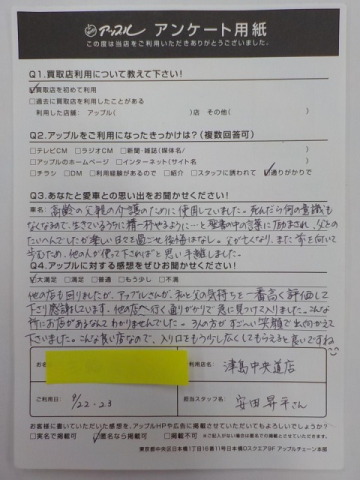 アップル アンケート用紙
この度は当店をご利用いただきありがとうございました。
Q1.買取店利用について教えて下さい!
☑買取店を初めて利用
□過去に買取店を利用したことがある
利用した店舗: アップル( )店 その他( )
Q2.アップルをご利用になったきっかけは?(複数回答可)
□テレビCM □ラジオCM □新聞・雑誌(媒体名/ )
□アップルのホームページ □インターネット(サイト名 )
□チラシ □DM □利用経験があるので □紹介 □スタッフに誘われて ☑通りがかりで
Q3.あなたと愛車との思い出をお聞かせください!
車名: 高齢の父親の介護のために使用していました。死んだら何の意識も
なくなるので、生きているうちに精一杯やるように…と聖書の中の言葉に励まされ、父との
たいへんでしたが楽しい日々を過ごせ後悔はなし。父が亡くなり、また前を向いて
歩むため、他の人が使って下さればと思い手離しました。
Q4.アップルに対する感想をぜひお聞かせください!
☑大満足 □満足 □普通 □もう少し □不満
他の店も回りましたが、アップルさんが、私と父の気持ちを一番高く評価して
下さり感謝しています。他の店へ行く通りがかりで急に見つけて入りました。こんな
所にお店があるなんてわかりませんでした。3人の方がすごーい笑顔で出むかえて
下さいました。こんな良い店なので、入り口をもう少し広くしてもらえると良いですね
お名
ご利用店名: 津島中央道店
ご利用日: 9/22-23
担当スタッフ名: 安田昇平さん
お客様に書いていただいた感想を、アップルHPや広告に掲載させていただいてもよろしいでしょうか?
□実名で掲載可 ☑匿名なら掲載可 □掲載不可
東京都中央区日本橋1丁目16番11号日本橋Dスクエア9F アップルチェーン本部